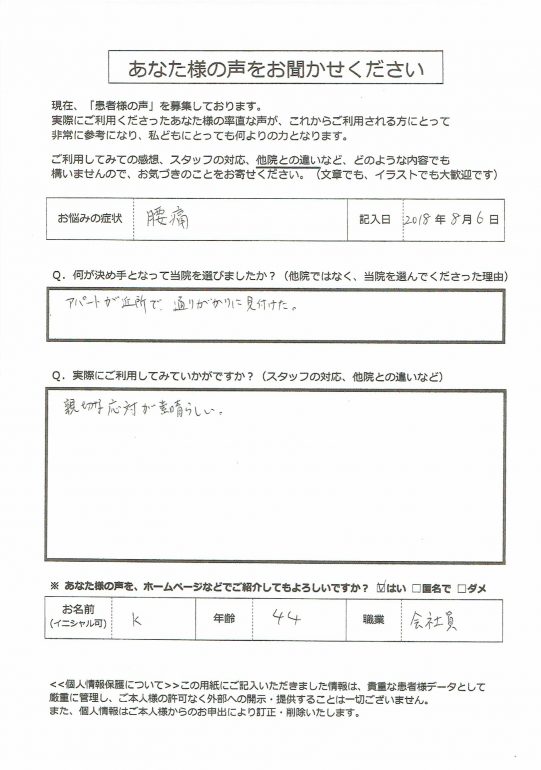 あなた様の声をお聞かせください
現在、「患者様の声」を募集しております。
実際にご利用くださったあなた様の率直な声が、これからご利用される方にとって
非常に参考になり、私どもにとっても何よりの力となります。
ご利用してみての感想、スタッフの対応、他院との違いなど、どのような内容でも
構いませんので、お気づきのことをお寄せください。（文章でも、イラストでも大歓迎です）
お悩みの症状 腰痛 記入日 2018年8月6日
Q．何が決め手となって当院を選びましたか？（他院ではなく、当院を選んでくださった理由）
アパートが近所で、通りがかりに見付けた。
Q．実際にご利用してみていかがですか？（スタッフの対応、他院との違いなど）
親切な応対が素晴らしい。
※ あなた様の声を、ホームページなどでご紹介してもよろしいですか？ ☑はい □匿名で □ダメ
お名前 K 年齢 44 職業 会社員
(イニシャル可)
<<個人情報保護について>>この用紙にご記入いただきました情報は、貴重な患者様データとして
厳重に管理し、ご本人様の許可なく外部への開示・提供することは一切ございません。
また、個人情報はご本人様からのお申出により訂正・削除いたします。